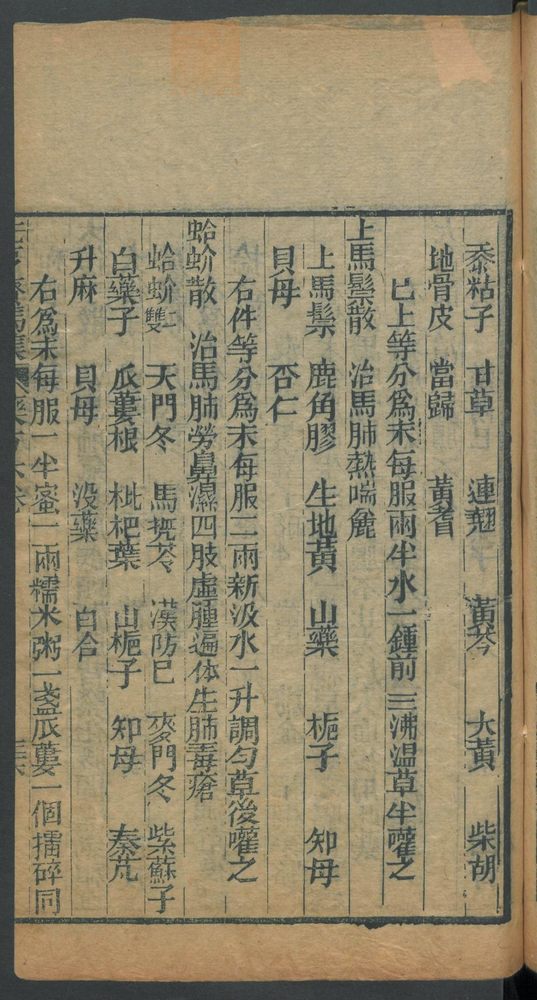 黍粘子 甘草 連翹 黃芩 大黃 柴胡
地骨皮 當歸 黃耆
已上等分爲末每服兩半水一鍾煎三沸温草半嚾之
上馬鬃散 治馬肺熱喘麄
上馬鬃 鹿角膠 生地黃 山藥 梔子 知母
貝母 杏仁
右件等分爲末每服二兩新汲水一升調勻草後嚾之
蛤蚧散 治馬肺勞鼻濕四肢虛腫遍体生肺毒瘡
蛤蚧一雙 天門冬 馬兠苓 漢防巳 麥門冬 紫蘇子
白藥子 瓜蔞根 枇杷葉 山梔子 知母 秦艽
升麻 貝母 没藥 白合
右爲末每服一半蜜二兩糯米粥一盞瓜蔞一個擂碎同